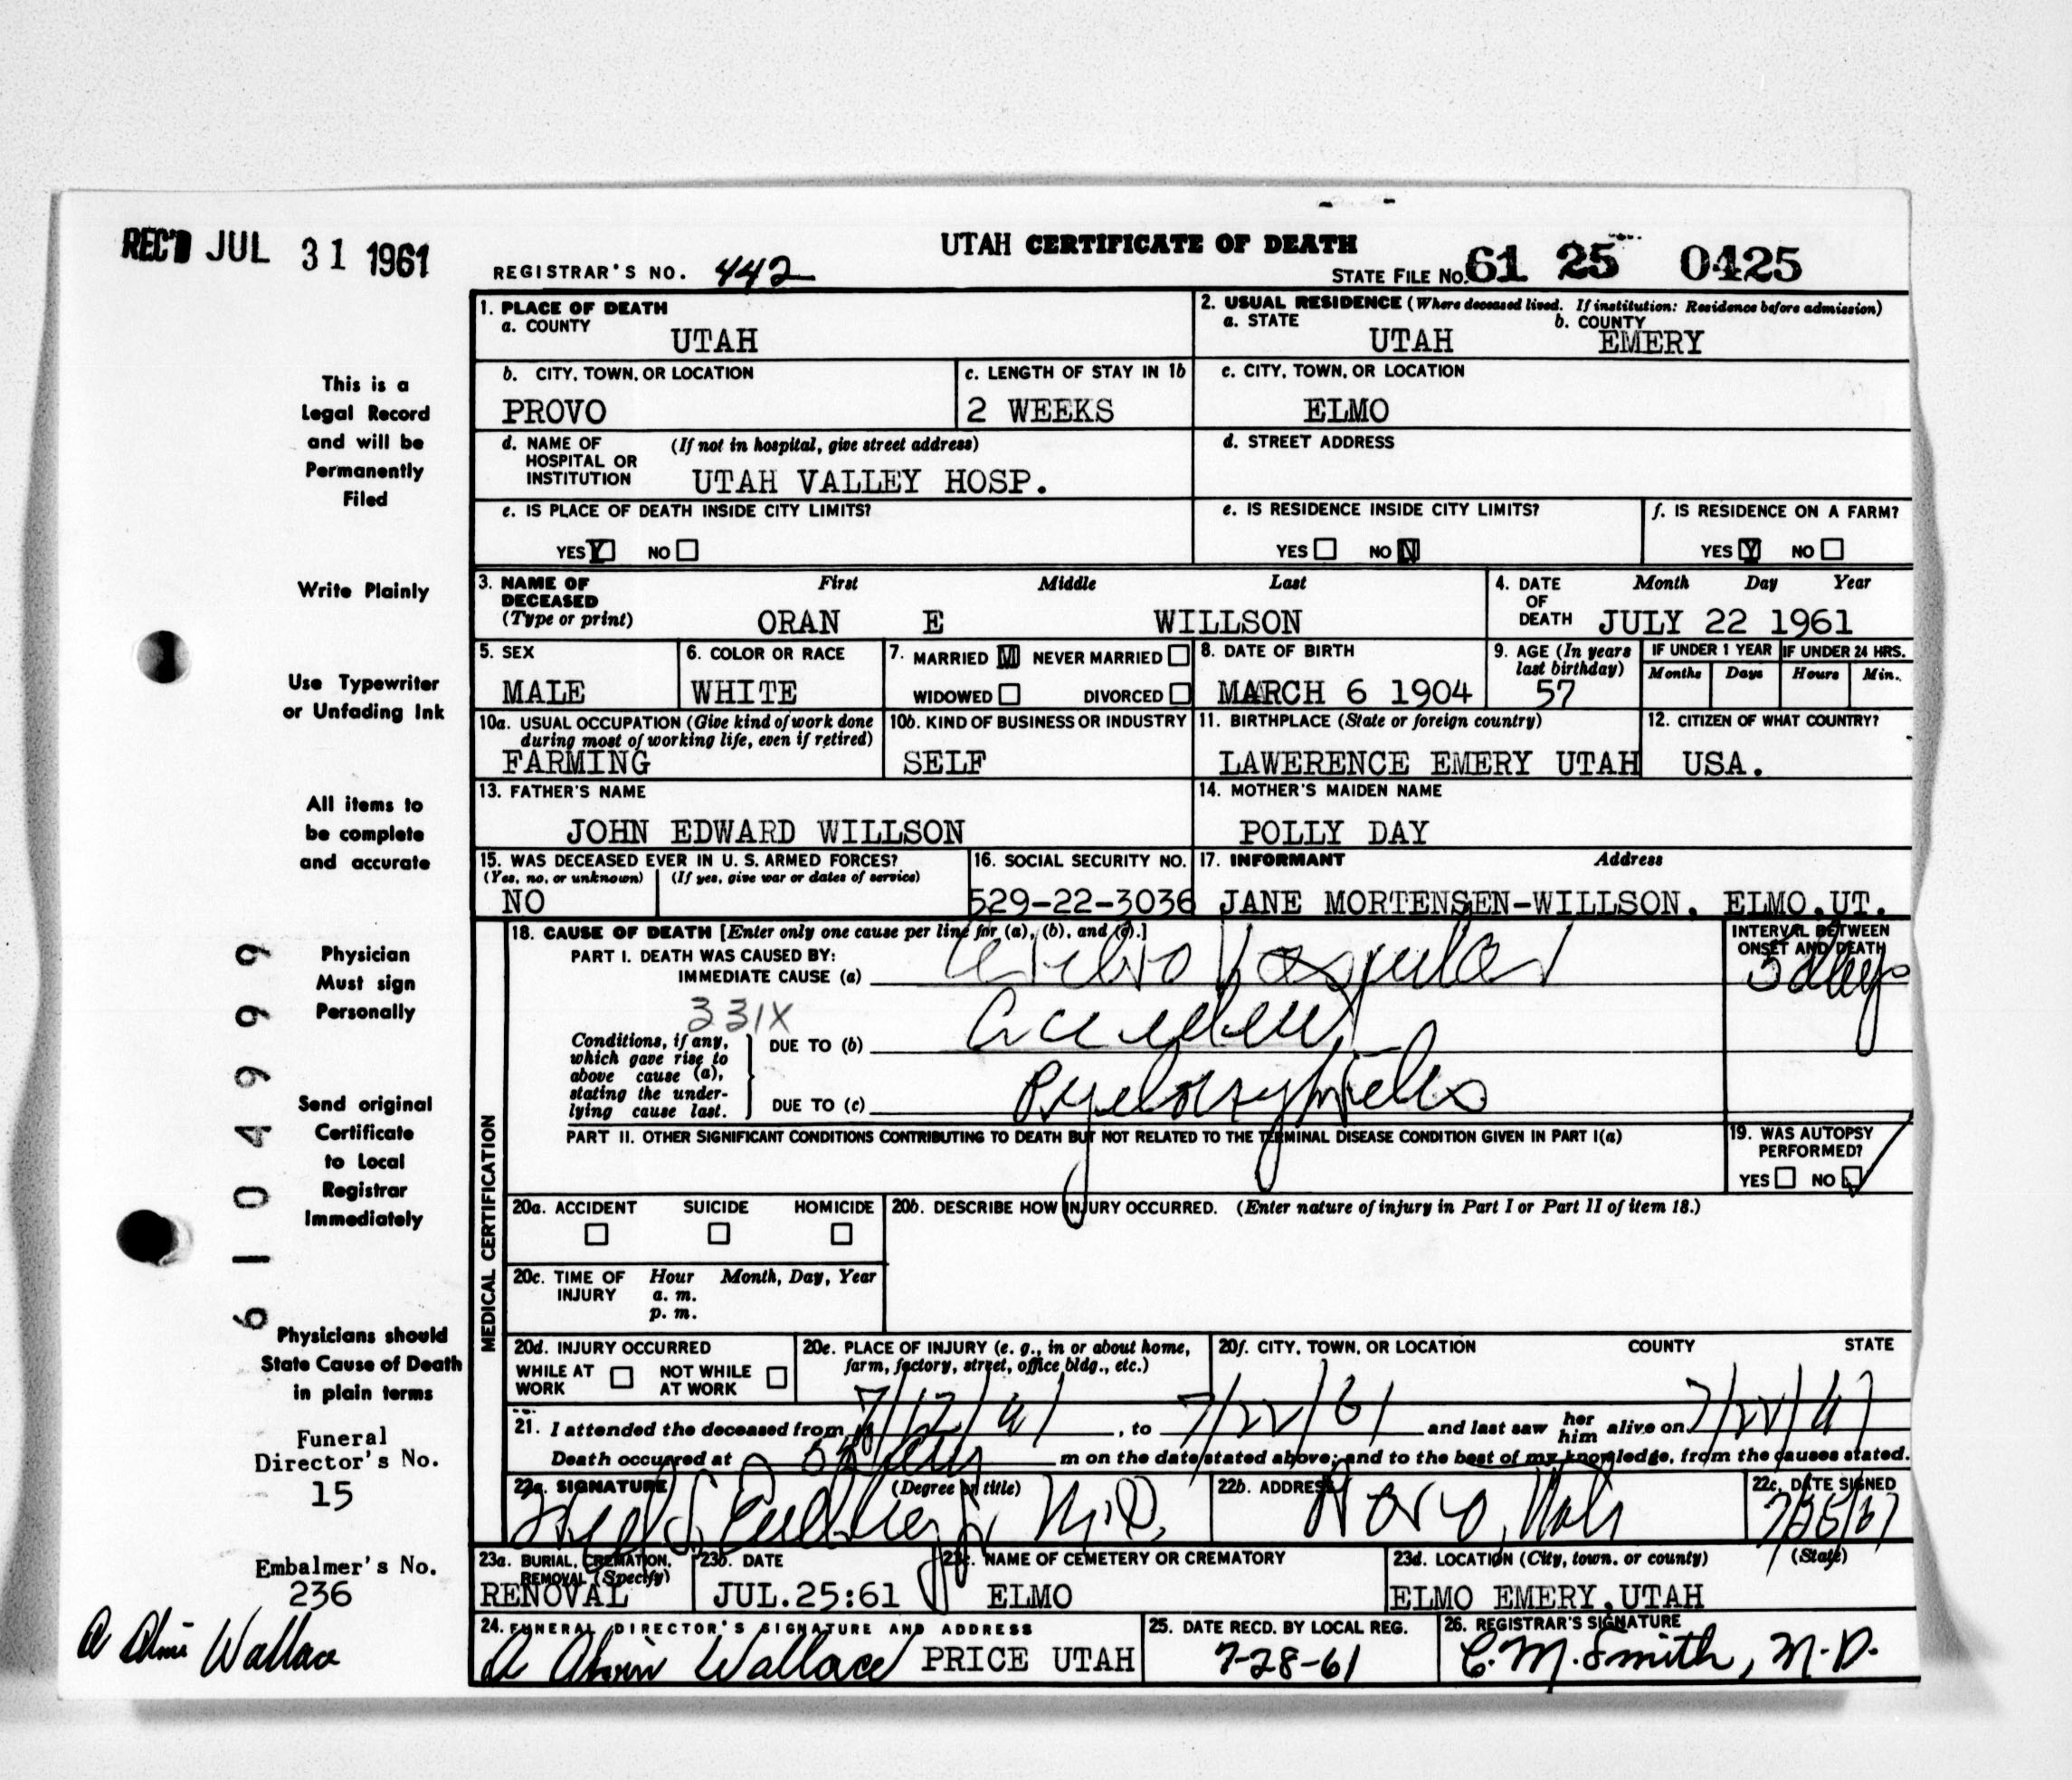 REC'D JUL 31 1961
UTAH CERTIFICATE OF DEATH
REGISTRAR'S NO. 442
STATE FILE NO. 61 25 0425
1. PLACE OF DEATH
a. COUNTY
UTAH
2. USUAL RESIDENCE (Where deceased lived. If institution: Residence before admission)
a. STATE b. COUNTY
UTAH EMERY
b. CITY, TOWN, OR LOCATION
PROVO
c. LENGTH OF STAY IN 1b
2 WEEKS
c. CITY, TOWN, OR LOCATION
ELMO
d. NAME OF (If not in hospital, give street address)
HOSPITAL OR
INSTITUTION UTAH VALLEY HOSP.
d. STREET ADDRESS
e. IS PLACE OF DEATH INSIDE CITY LIMITS?
YES Y NO
e. IS RESIDENCE INSIDE CITY LIMITS?
YES NO N
f. IS RESIDENCE ON A FARM?
YES Y NO
3. NAME OF First Middle Last
DECEASED
(Type or print) ORAN E WILLSON
4. DATE Month Day Year
OF
DEATH JULY 22 1961
5. SEX
MALE
6. COLOR OR RACE
WHITE
7. MARRIED M NEVER MARRIED
WIDOWED DIVORCED
8. DATE OF BIRTH
MARCH 6 1904
9. AGE (In years
last birthday)
57
IF UNDER 1 YEAR
Months Days
IF UNDER 24 HRS.
Hours Min.
10a. USUAL OCCUPATION (Give kind of work done
during most of working life, even if retired)
FARMING
10b. KIND OF BUSINESS OR INDUSTRY
SELF
11. BIRTHPLACE (State or foreign country)
LAWERENCE EMERY UTAH
12. CITIZEN OF WHAT COUNTRY?
USA.
13. FATHER'S NAME
JOHN EDWARD WILLSON
14. MOTHER'S MAIDEN NAME
POLLY DAY
15. WAS DECEASED EVER IN U. S. ARMED FORCES?
(Yes, no, or unknown) (If yes, give war or dates of service)
NO
16. SOCIAL SECURITY NO.
529-22-3036
17. INFORMANT Address
JANE MORTENSEN-WILLSON. ELMO.UT.
MEDICAL CERTIFICATION
18. CAUSE OF DEATH [Enter only one cause per line for (a), (b), and (c).]
PART I. DEATH WAS CAUSED BY:
IMMEDIATE CAUSE (a) Cerebro Vascular
331X
Conditions, if any,
which gave rise to
above cause (a),
stating the under-
lying cause last.
DUE TO (b) Accident
DUE TO (c)
INTERVAL BETWEEN
ONSET AND DEATH
5 days
PART II. OTHER SIGNIFICANT CONDITIONS CONTRIBUTING TO DEATH BUT NOT RELATED TO THE TERMINAL DISEASE CONDITION GIVEN IN PART I(a)
19. WAS AUTOPSY
PERFORMED?
YES NO
20a. ACCIDENT SUICIDE HOMICIDE
20b. DESCRIBE HOW INJURY OCCURRED. (Enter nature of injury in Part I or Part II of item 18.)
20c. TIME OF Hour Month, Day, Year
INJURY a. m.
p. m.
20d. INJURY OCCURRED
WHILE AT NOT WHILE
WORK AT WORK
20e. PLACE OF INJURY (e. g., in or about home,
farm, factory, street, office bldg., etc.)
20f. CITY, TOWN, OR LOCATION COUNTY STATE
21. I attended the deceased from 7/12/61, to 7/22/61 and last saw her him alive on 7/22/61
Death occurred at m on the date stated above; and to the best of my knowledge, from the causes stated.
22a. SIGNATURE (Degree or title)
M.D.
22b. ADDRESS
Provo, Utah
22c. DATE SIGNED
7/25/61
23a. BURIAL, CREMATION,
REMOVAL (Specify)
RENOVAL
23b. DATE
JUL.25:61
23c. NAME OF CEMETERY OR CREMATORY
ELMO
23d. LOCATION (City, town, or county) (State)
ELMO EMERY.UTAH
24. FUNERAL DIRECTOR'S SIGNATURE AND ADDRESS
Wallace PRICE UTAH
25. DATE RECD. BY LOCAL REG.
7-28-61
26. REGISTRAR'S SIGNATURE
C.M. Smith, M.D.
This is a
Legal Record
and will be
Permanently
Filed
Write Plainly
Use Typewriter
or Unfading Ink
All items to
be complete
and accurate
Physician
Must sign
Personally
Send original
Certificate
to Local
Registrar
Immediately
Physicians should
State Cause of Death
in plain terms
6104999
Funeral
Director's No.
15
Embalmer's No.
236
Wallace